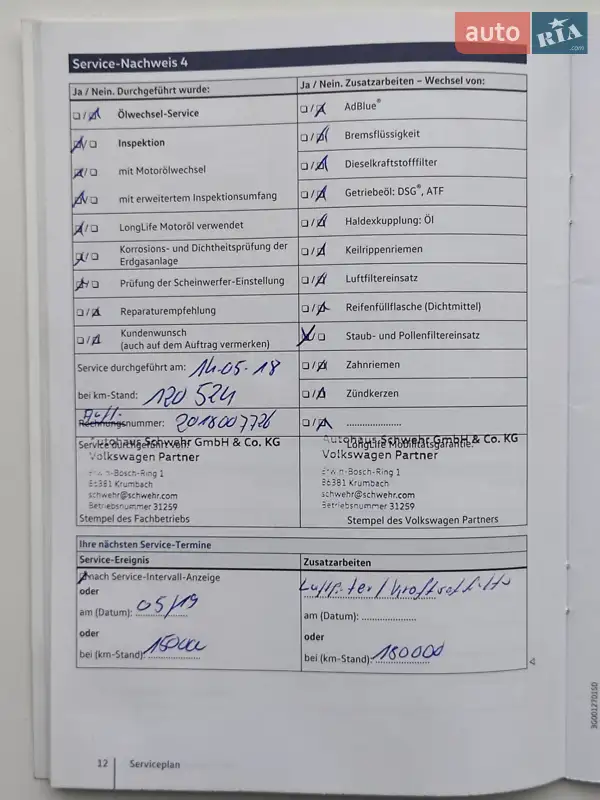 auto RIA .com
Service-Nachweis 4
Ja / Nein. Durchgeführt wurde:
Ölwechsel-Service
Inspektion
mit Motorölwechsel
mit erweitertem Inspektionsumfang
LongLife Motoröl verwendet
Korrosions- und Dichtheitsprüfung der
Erdgasanlage
Prüfung der Scheinwerfer-Einstellung
Reparaturempfehlung
Kundenwunsch
(auch auf dem Auftrag vermerken)
Service durchgeführt am: 14.05.18
bei km-Stand: 120 524
Auft.
Rechnungsnummer: 2018007726
Service durchgeführt von:
Autohaus Schwehr GmbH & Co. KG
Volkswagen Partner
Erwin-Bosch-Ring 1
86381 Krumbach
schwehr@schwehr.com
Betriebsnummer 31259
Stempel des Fachbetriebs
Ja / Nein. Zusatzarbeiten – Wechsel von:
AdBlue®
Bremsflüssigkeit
Dieselkraftstofffilter
Getriebeöl: DSG®, ATF
Haldexkupplung: Öl
Keilrippenriemen
Luftfiltereinsatz
Reifenfüllflasche (Dichtmittel)
Staub- und Pollenfiltereinsatz
Zahnriemen
Zündkerzen
......................
LongLife Mobilitätsgarantie:
Autohaus Schwehr GmbH & Co. KG
Volkswagen Partner
Erwin-Bosch-Ring 1
86381 Krumbach
schwehr@schwehr.com
Betriebsnummer 31259
Stempel des Volkswagen Partners
Ihre nächsten Service-Termine
Service-Ereignis
nach Service-Intervall-Anzeige
oder
am (Datum): 05/19
oder
bei (km-Stand):
Zusatzarbeiten
am (Datum): ......................
oder
bei (km-Stand): 180000
12 Serviceplan
3G0012701SD